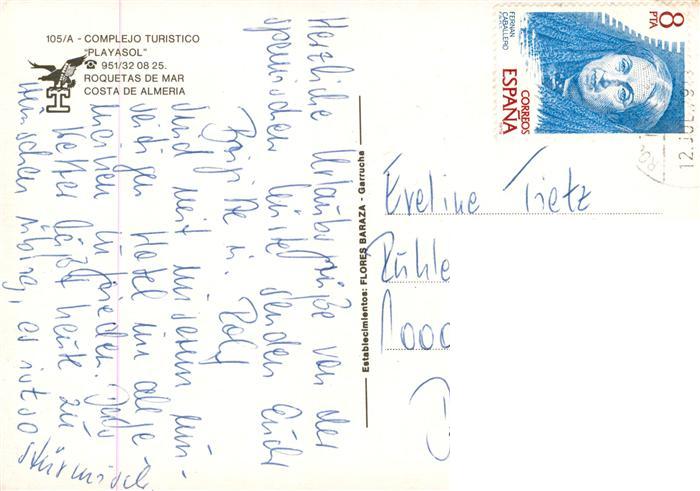 105/A - COMPLEJO TURISTICO
"PLAYASOL"
☎ 951/32 08 25.
ROQUETAS DE MAR
COSTA DE ALMERIA
Herzliche Urlaubsgrüße von der
spanischen Küste senden Euch
Brigitte u. Rolf
sind mit unserem
Hotel im
zufrieden.
Wetter läßt heute zu
wünschen übrig, es ist so
stürmisch.
Establecimientos: FLORES BARAZA - Garrucha
Eveline Tietz
Rühle
8
PTA
FERNAN
CABALLERO
CORREOS
ESPAÑA
12.JUL.